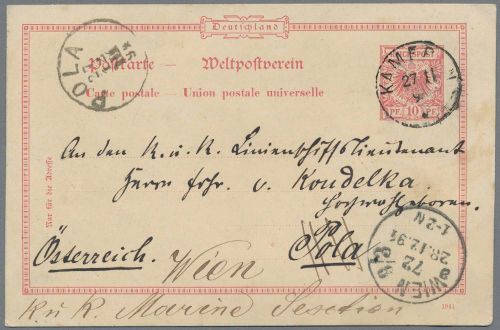 Deutschland
Postkarte — Weltpostverein
Carte postale — Union postale universelle
REICHSPOST
PF 10 PF
KAMERUN
27 11
POLA
Nur für die Adresse
An den K. u. K. Linienschiffslieutenant
Herrn Frhr. v. Koudelka
Hochwohlgeboren.
Österreich. Wien Pola
WIEN
72
28.12.94
1-2N
K u K Marine Section